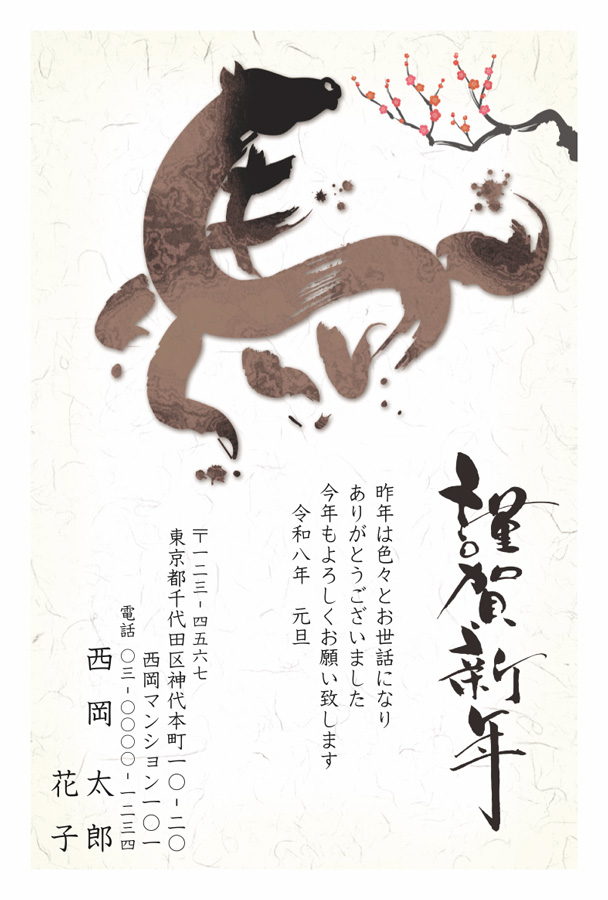 謹賀新年
昨年は色々とお世話になり
ありがとうございました
今年もよろしくお願い致します
令和八年　元旦
〒一二三-四五六七
東京都千代田区神代本町一〇-二〇
西岡マンション一〇一
電話　〇三-〇〇〇〇-一二三四
西岡　太郎
花子